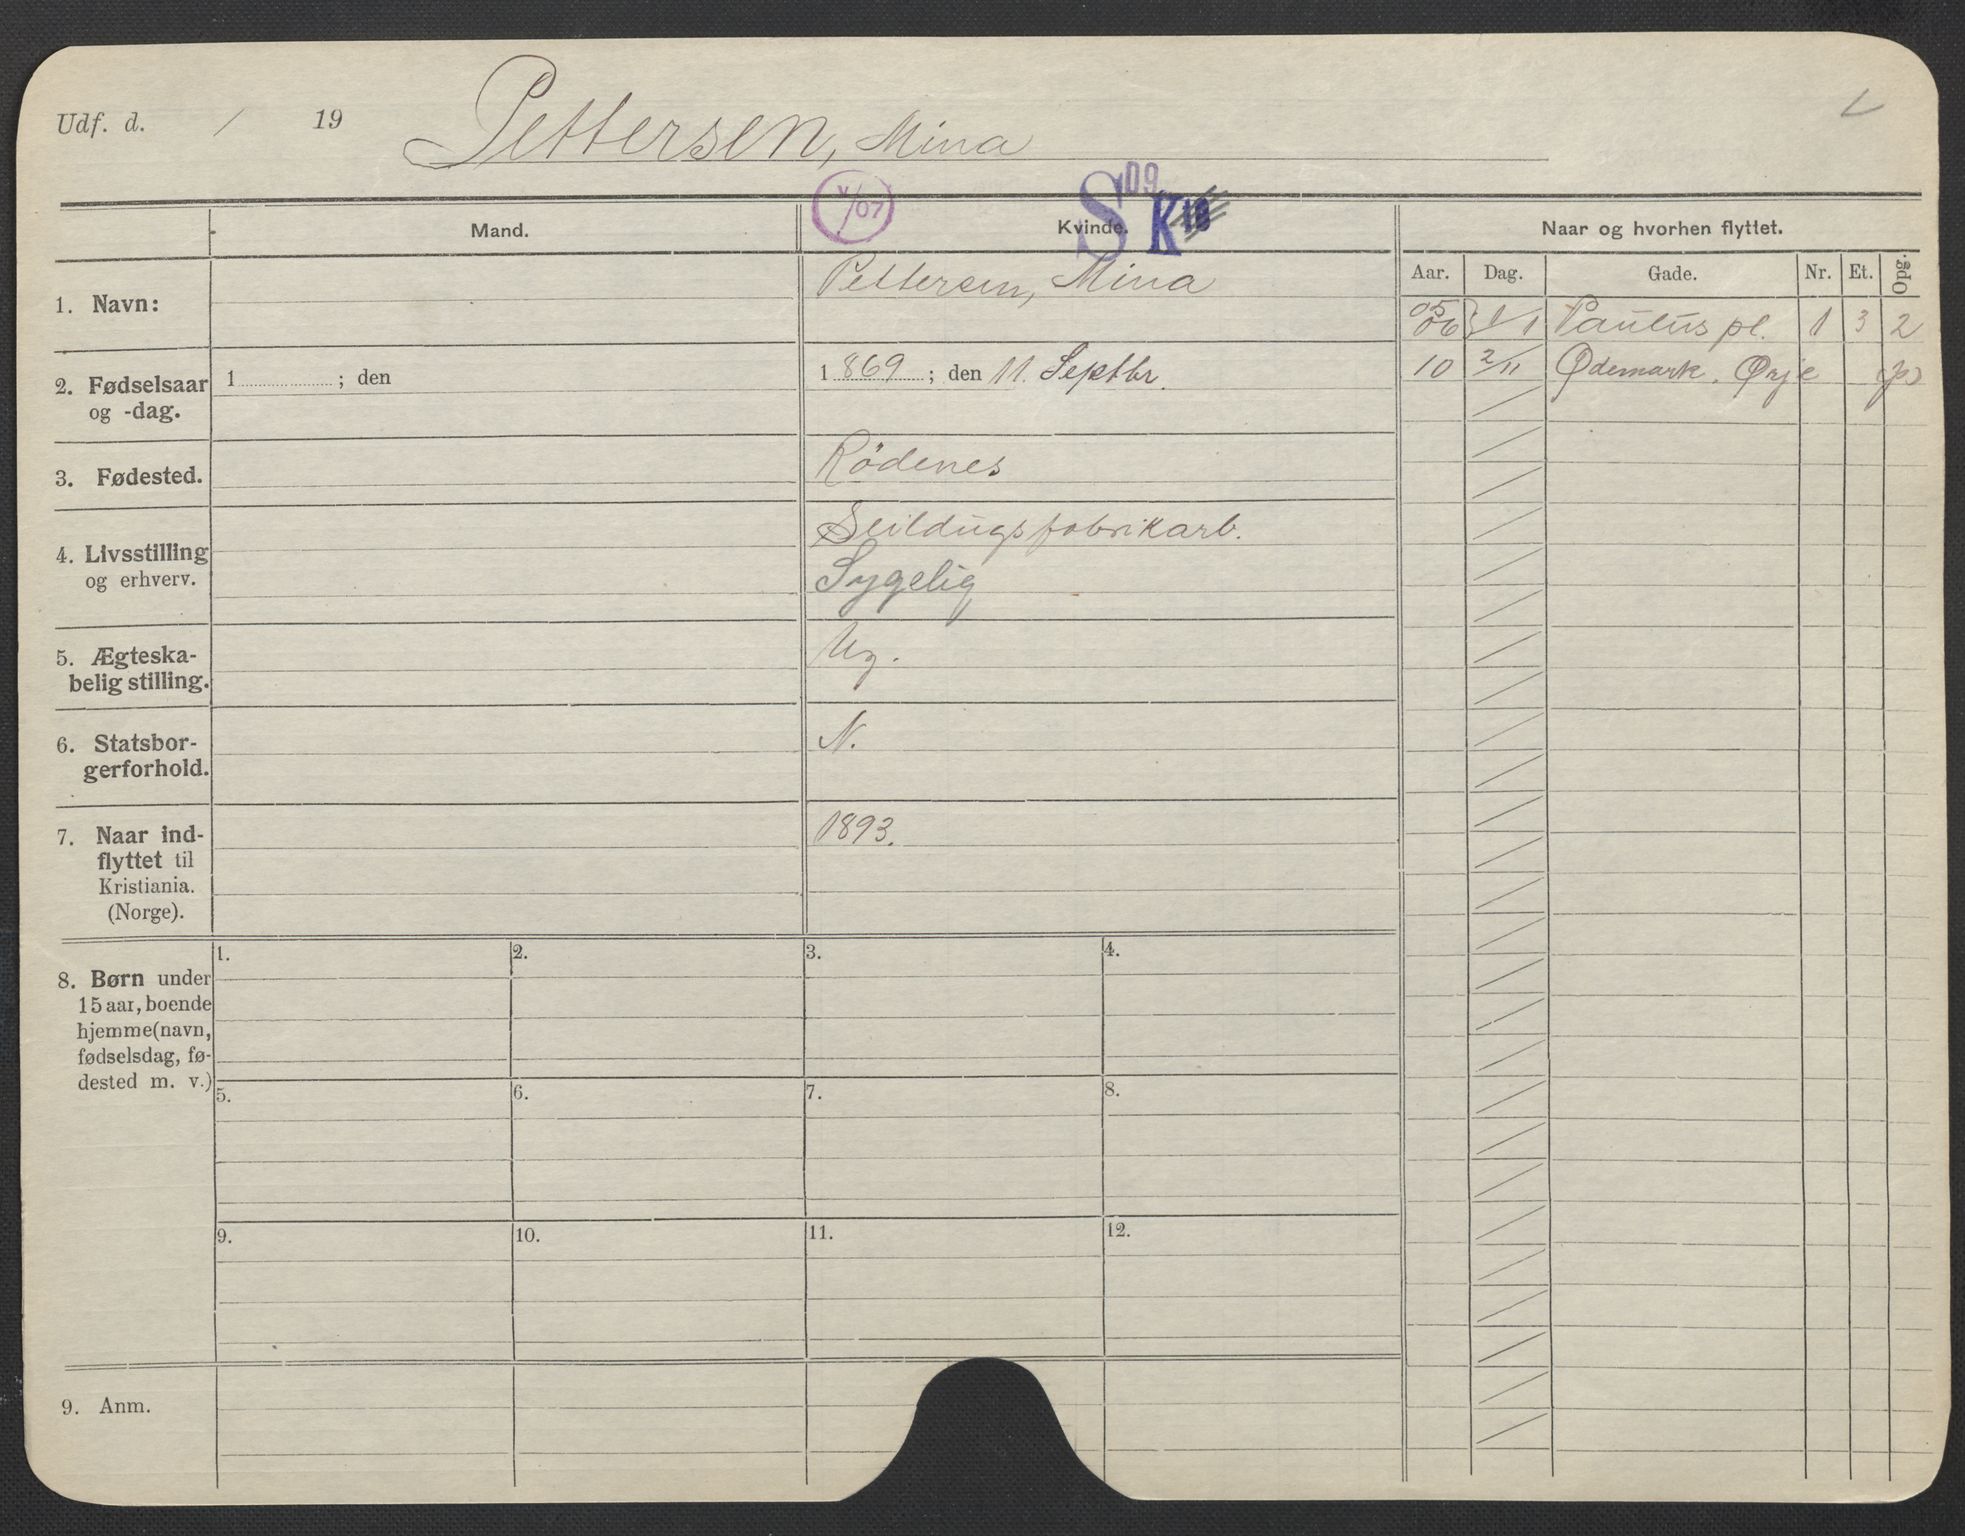 Udf. d. / 19
Pettersen, Mina
V/07
S 09 K 10
Mand. Kvinde. Naar og hvorhen flyttet.
Aar. Dag. Gade. Nr. Et. Opg.
1. Navn:
Pettersen, Mina
05 06 } 1/1 Paulus pl. 1 3 2
10 2/11 Ødemark. Ørje
2. Fødselsaar og -dag.
1 ; den
1 869 ; den 11. Septbr.
3. Fødested.
Rödenes
4. Livsstilling og erhverv.
Seildugsfabrikarb.
Sygelig
5. Ægteska-
belig stilling.
Ug.
6. Statsbor-
gerforhold.
N.
7. Naar ind-
flyttet til
Kristiania.
(Norge).
1893.
8. Børn under
15 aar, boende
hjemme (navn,
fødselsdag, fø-
dested m. v.)
1. 2. 3. 4.
5. 6. 7. 8.
9. 10. 11. 12.
9. Anm.